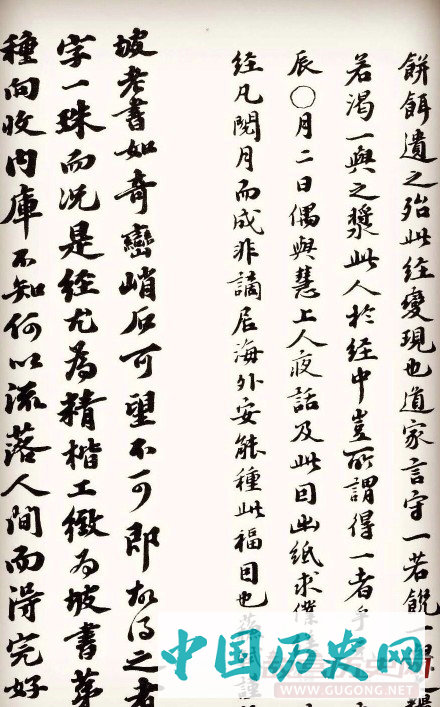 餅餌遺之殆此經變現也道家言守一若飢一糧
若渴一與之漿此人於經中豈所謂得一者乎
辰〇月二日偶與慧上人夜話及此因出紙求僕
經凡閱月而成非謫居海外安能種此福因也蘇軾謹
坡老書如奇巒峭石可望不可即故得之者
字一珠而況是經尤為精楷工緻為坡書第
種向收內庫不知何以流落人間而得完好
中国历史网
WWW.GUGONG.NET